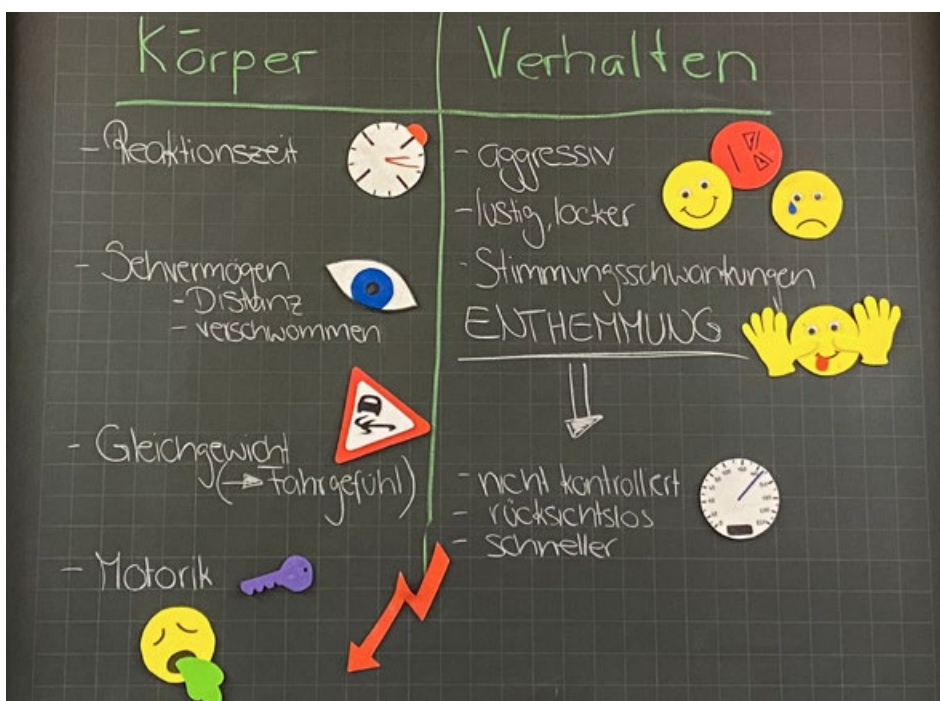 Körper
- Reaktionszeit
- Sehvermögen
- Distanz
- verschwommen
- Gleichgewicht
(→ Fahrgefühl)
- Motorik
Verhalten
- aggressiv
- lustig, locker
- Stimmungsschwankungen
ENTHEMMUNG
- nicht kontrolliert
- rücksichtslos
- schneller